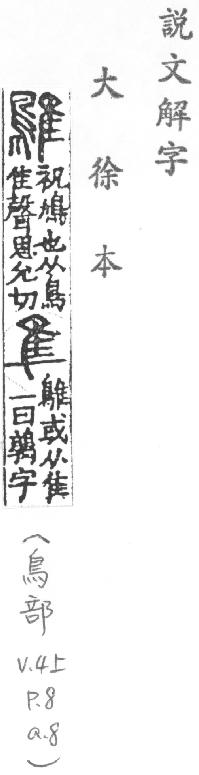 說文解字
大徐本
鵻祝鳩也从鳥
隹聲思允切
隼鵻或从隹一
一曰鶉字
(鳥部 V.4上 P.8 a.8)